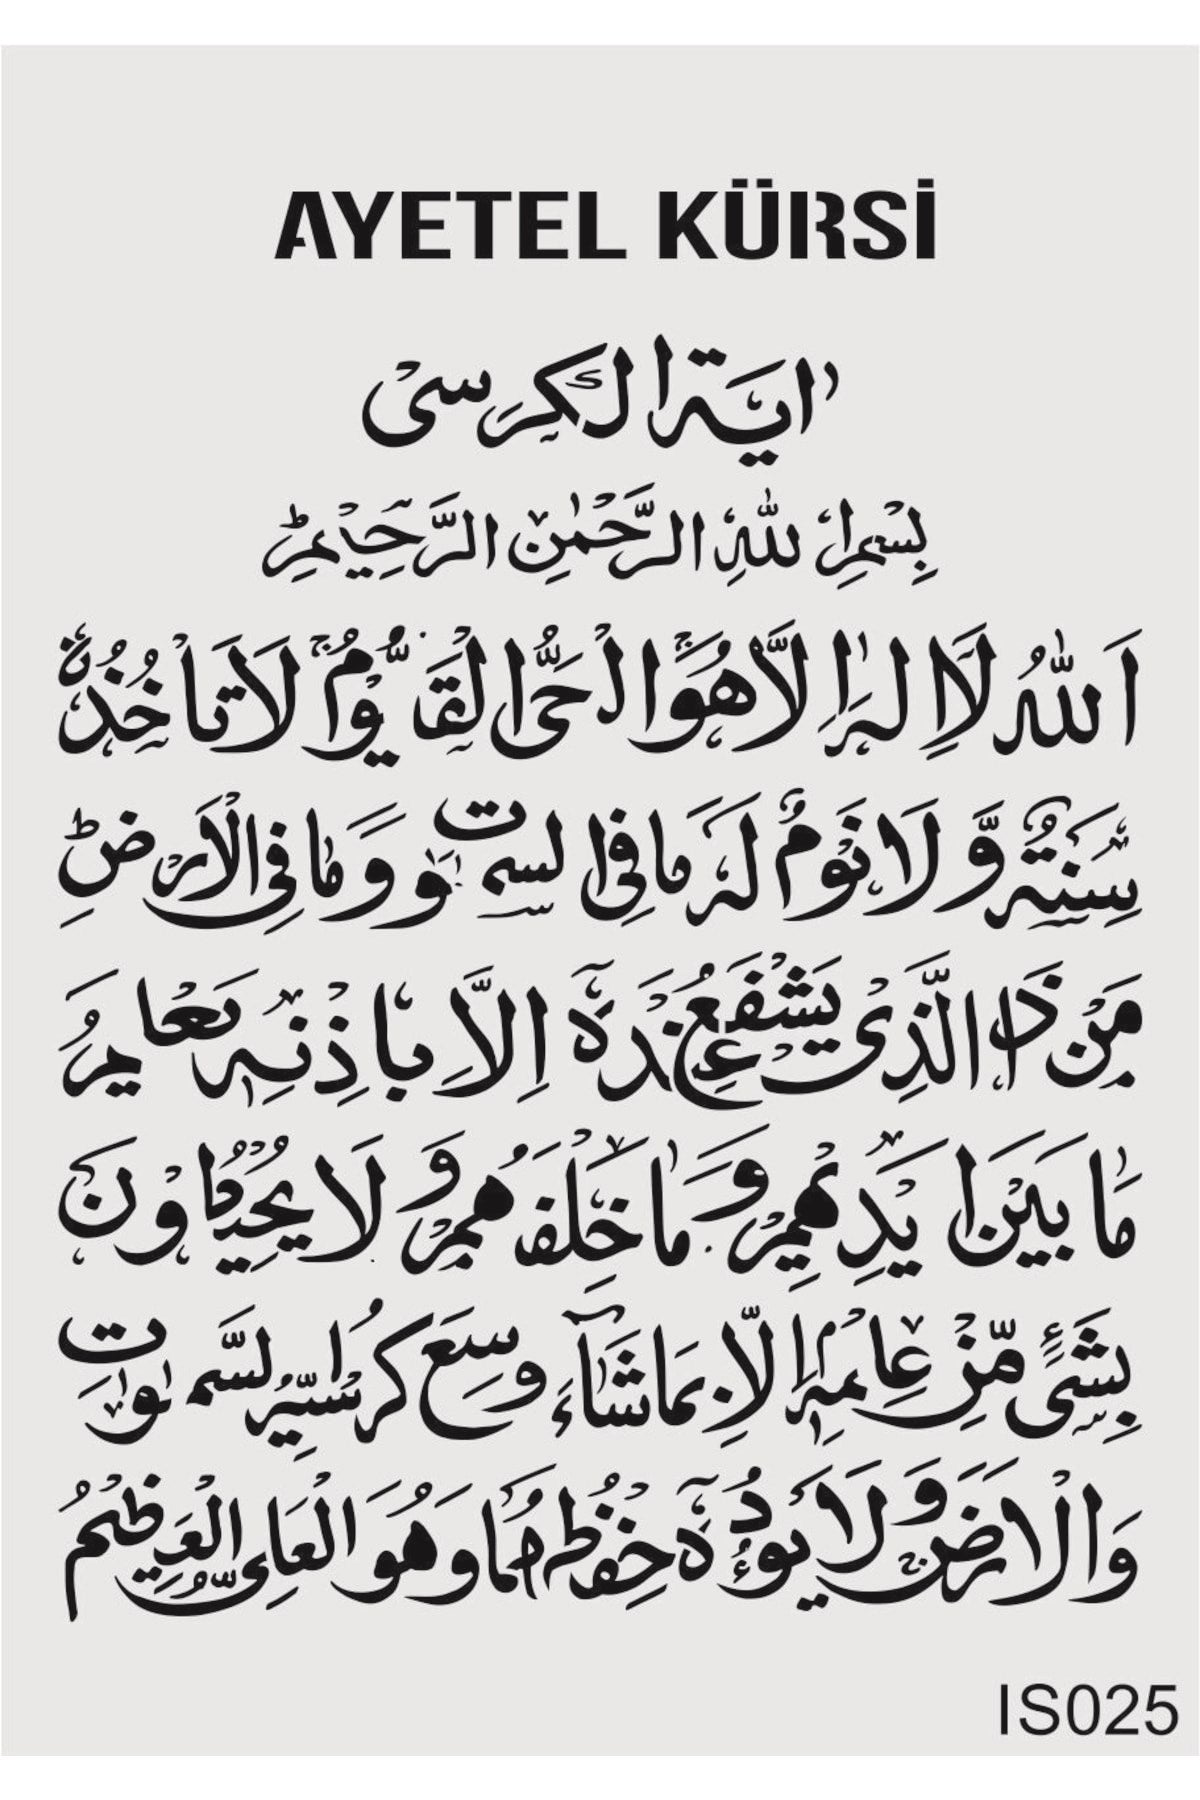 AYETEL KÜRSİ
اية الكرسى
بِسْمِ اللهِ الرَّحْمٰنِ الرَّحِيْمِ
اَللهُ لَا اِلٰهَ اِلَّا هُوَ الْحَىُّ الْقَيُّوْمُ لَا تَاْخُذُهٗ
سِنَةٌ وَّلَا نَوْمٌ لَهٗ مَا فِى السَّمٰوٰتِ وَمَا فِى الْاَرْضِ
مَنْ ذَا الَّذِىْ يَشْفَعُ عِنْدَهٗ اِلَّا بِاِذْنِهٖ يَعْلَمُ
مَا بَيْنَ اَيْدِيْهِمْ وَمَا خَلْفَهُمْ وَلَا يُحِيْطُوْنَ
بِشَىْءٍ مِّنْ عِلْمِهٖ اِلَّا بِمَا شَآءَ وَسِعَ كُرْسِيُّهُ السَّمٰوٰتِ
وَالْاَرْضَ وَلَا يَئُوْدُهٗ حِفْظُهُمَا وَهُوَ الْعَلِىُّ الْعَظِيْمُ
IS025